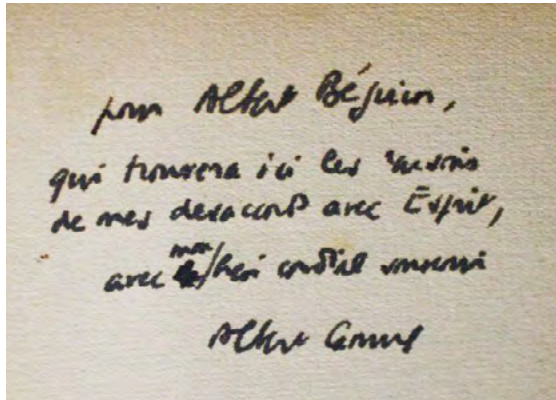 pour Albert Béguin,
qui trouvera ici les raisons
de mes desaccords avec Esprit,
avec mon cordial souvenir
Albert Camus